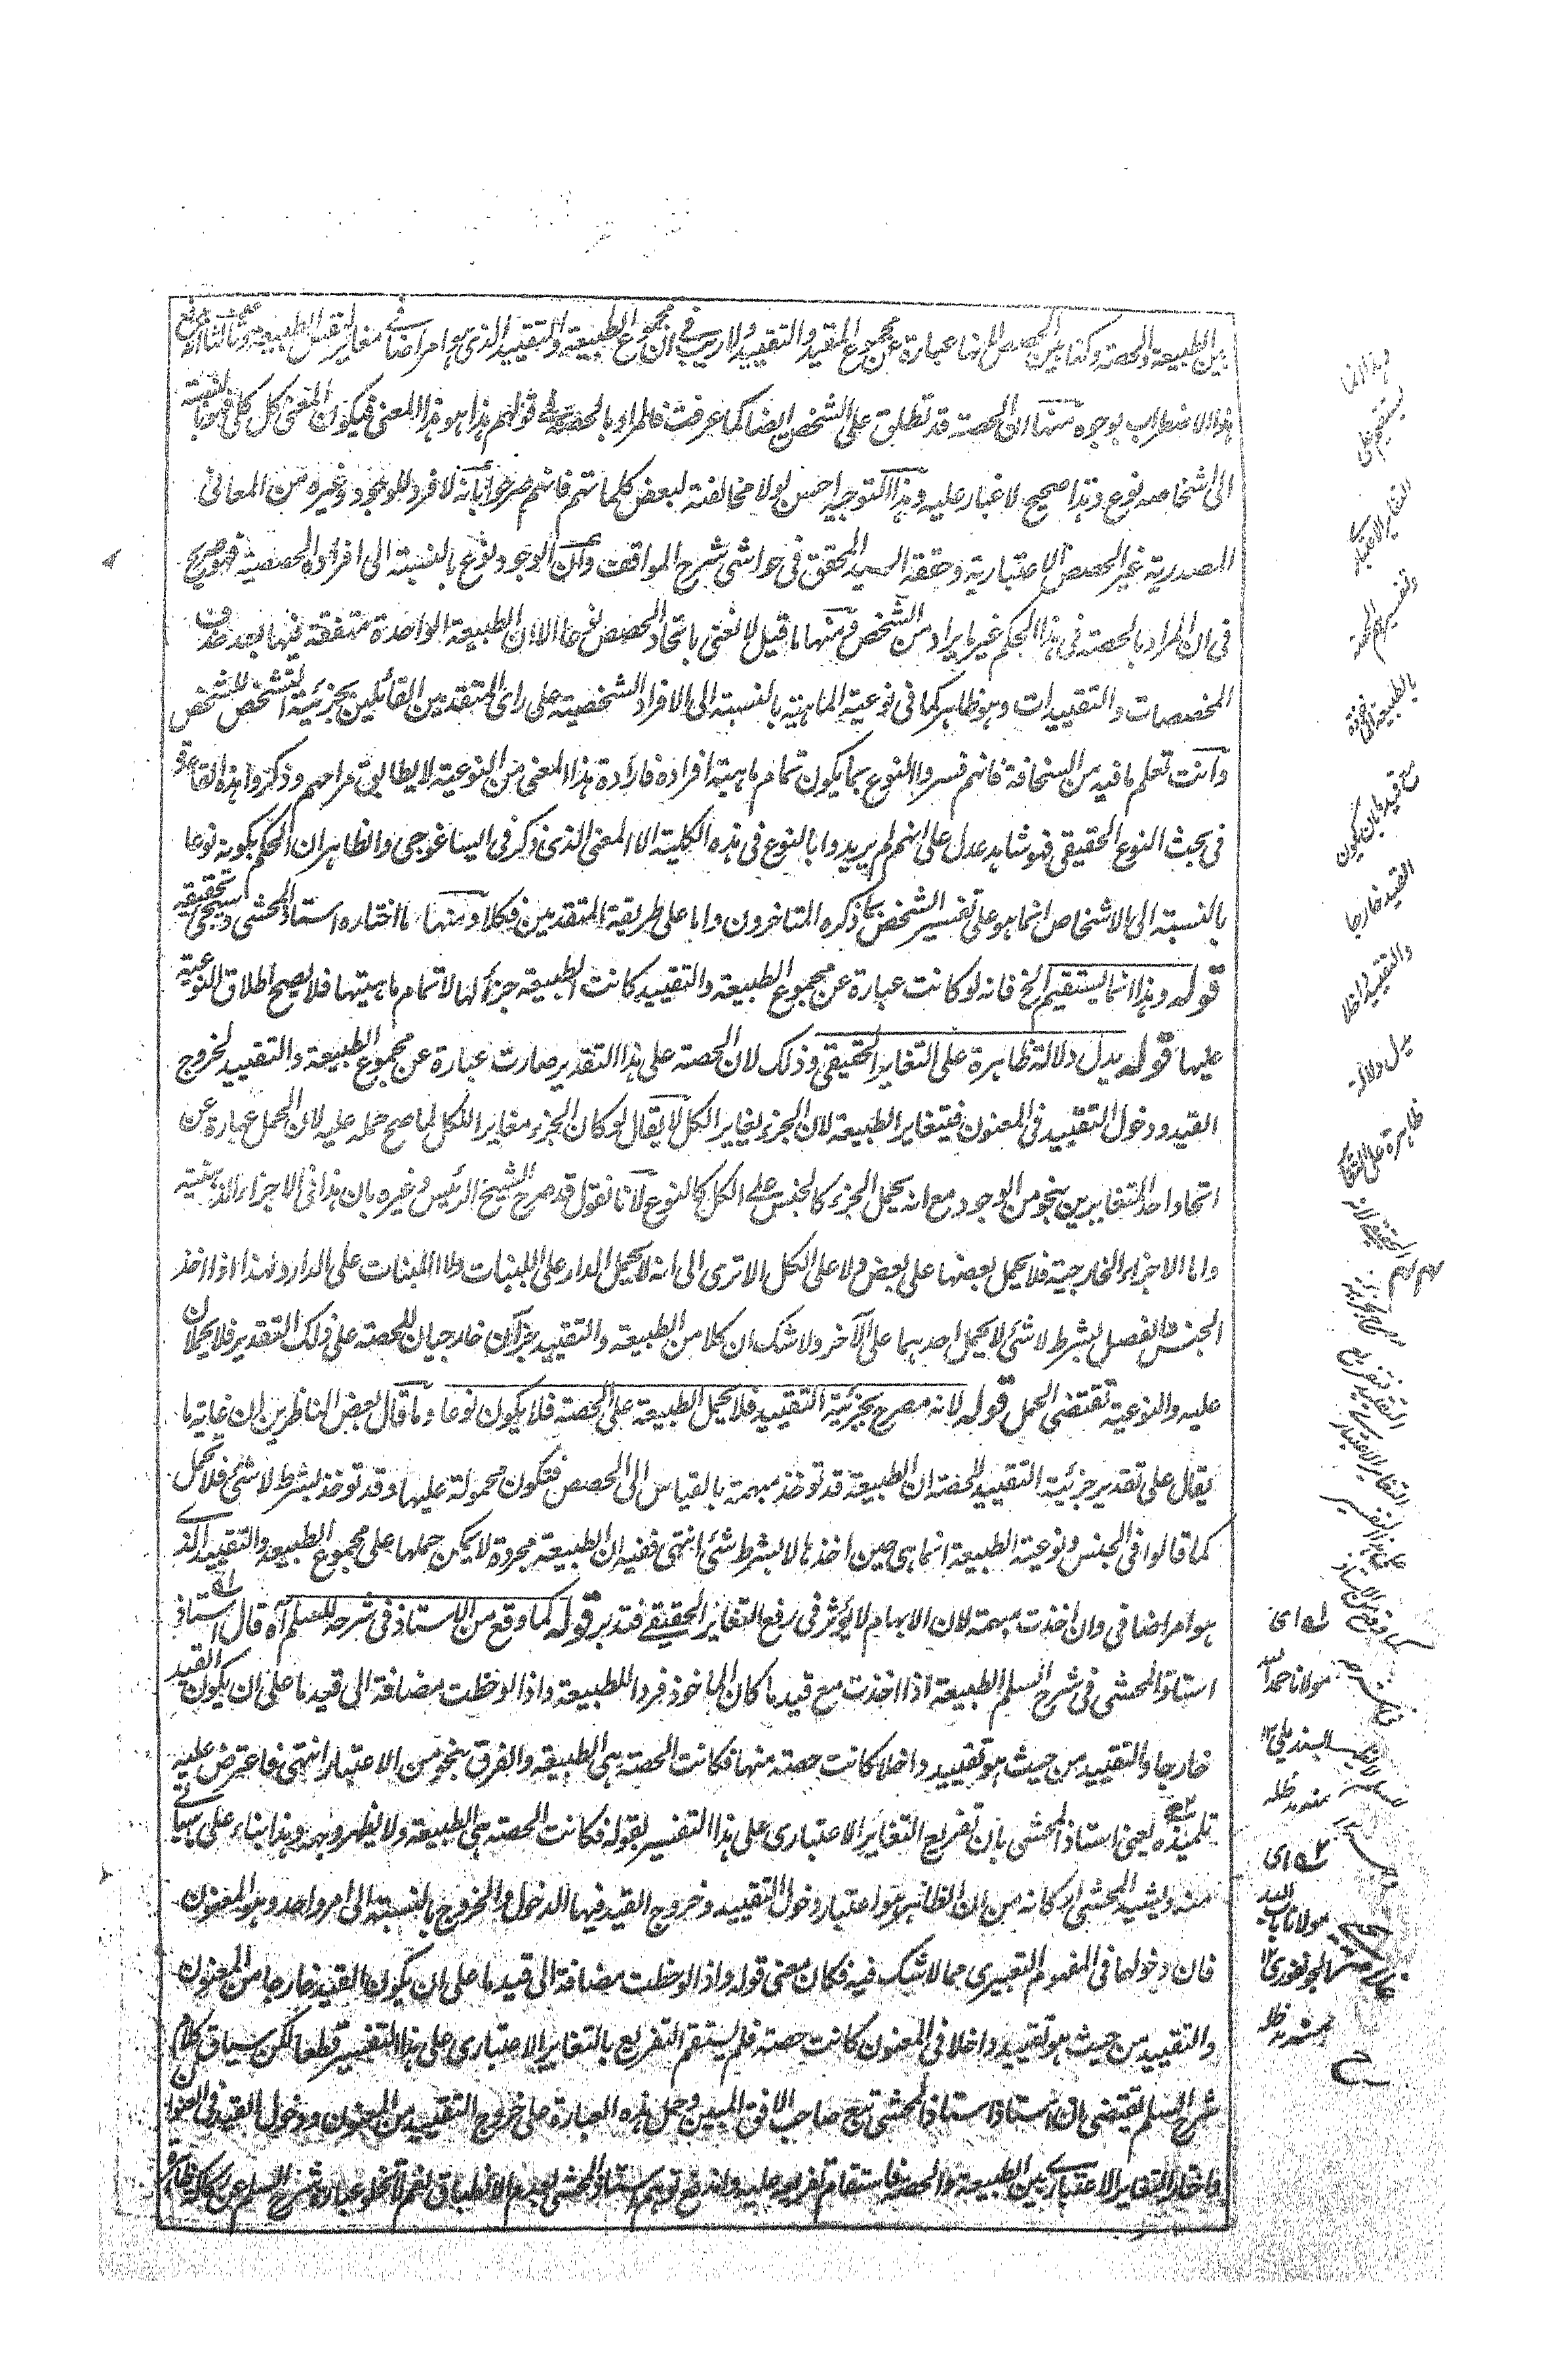 بين الطبيعة والحصة وكذا بين الحصص لانها عبارة عن مجموع المقيد والتقييد ولا ريب في ان مجموع الطبيعة والتقييد الذي هو امر اضافي مغاير لنفس الطبيعة
هذا الاضطراب بوجوه منها ان الحصة قد تطلق على الشخص ايضا كما عرفت فالمراد بالحصة في قولهم هذا هو هذا المعنى فيكون المعنى كل كلي فهو بالنسبة
الى اشخاصه نوع وهذا صحيح لا غبار عليه وهذا التوجيه احسن لولا مخالفته لبعض كلماتهم فانهم صرحوا بانه لا فرد للوجود وغيره من المعاني
المصدرية غير الحصص الاعتبارية وحققه السيد المحقق في حواشي شرح المواقف وان الوجود نوع بالنسبة الى افراده الحصصية فهو صريح
في ان المراد بالحصة في هذا الحكم غير ما يراد من الشخص ومنها ما قيل لا نعني باتحاد الحصص نوعا الا ان الطبيعة الواحدة متفقة فيها بعد حذف
المخصصات والتقييدات وهو ظاهر كما في نوعية الماهية بالنسبة الى الافراد الشخصية على راى المتقدمين القائلين بجزئية التشخص للشخص
وانت تعلم ما فيه من السخافة فانهم فسروا النوع بما يكون تمام ماهية افراده فارادة هذا المعنى من النوعية لا يطابق مرامهم وذكروا هذه القاعدة
في بحث النوع الحقيقي فهو شاهد عدل على انهم لم يريدوا بالنوع في هذه الكلية الا المعنى الذي ذكر في ايساغوجي والظاهر ان الحكم بكونه نوعا
بالنسبة الى الاشخاص انما هو على تفسير الشخص بما ذكره المتاخرون واما على طريقة المتقدمين فكلا ومنها ما اختاره استاذ المحشي وسيجئ تحقيقه
قوله وهذا انما يستقيم الخ فانه لو كانت عبارة عن مجموع الطبيعة والتقييد كانت الطبيعة جزأ لها لا تمام ماهيتها فلا يصح اطلاق النوعية
عليها قوله يدل دلالة ظاهرة على التغاير الحقيقي وذلك لان الحصة على هذا التقدير صارت عبارة عن مجموع الطبيعة والتقييد لخروج
القيد ودخول التقييد في المعنون فيتغاير الطبيعة لان الجزء يغاير الكل لا يقال لو كان الجزء مغايرا للكل لما صح حمله عليه لان الحمل عبارة عن
اتحاد احد المتغايرين بنحو من الوجود مع انه يحمل الجزء كالجنس على الكل كالنوع لانا نقول قد صرح الشيخ الرئيس وغيره بان هذا في الاجزاء الذهنية
واما الاجزاء الخارجية فلا يحمل بعضها على بعض ولا على الكل الا ترى الى انه لا يحمل الدار على اللبنات ولا اللبنات على الدار ولهذا اذا اخذ
الجنس والفصل بشرط لا شئ لا يحمل احدهما على الآخر ولا شك ان كلا من الطبيعة والتقييد جزآن خارجيان للحصة على ذلك التقدير فلا يحملان
عليه والنوعية تقتضي الحمل قوله لانه مصرح بجزئية التقييد فلا يحمل الطبيعة على الحصة فلا يكون نوعا وما قال بعض الناظرين ان غاية ما
يقال على تقدير جزئية التقييد للحصة ان الطبيعة قد توخذ مبهمة بالقياس الى الحصص فتكون محمولة عليها وقد توخذ بشرط لا شئ فلا تحمل
كما قالوا في الجنس ونوعية الطبيعة انما هي حين اخذها لا بشرط شئ انتهى ففيه ان الطبيعة مجردة لا يمكن حملها على مجموع الطبيعة والتقييد الذي
هو امر اضافي وان اخذت مبهمة لان الابهام لا يؤثر في رفع التغاير الحقيقي فتدبر قوله كما وقع من الاستاذ في شرحه للسلم آه قال استاذ
استاذ المحشي في شرح السلم الطبيعة اذا اخذت مع قيد ما كان الماخوذ فردا للطبيعة واذا لوحظت مضافة الى قيد ما على ان يكون القيد
خارجا والتقييد من حيث هو تقييد داخلا كانت حصة منها فكانت الحصة هي الطبيعة والفرق بنحو من الاعتبار انتهى فاعترض عليه
تلميذه يعني استاذ المحشي بان تفريع التغاير الاعتباري على هذا التفسير بقوله فكانت الحصة هي الطبيعة ولا يظهر وجهه وهذا بناء على ما ياتي
منه ويشيد المحشي اركانه من ان الظاهر هو اعتبار دخول التقييد وخروج القيد فيها الدخول والخروج بالنسبة الى امر واحد وهو المعنون
فان دخولها في المفهوم التعبيري مما لا شك فيه فكان معنى قوله واذا لوحظت مضافة الى قيد ما على ان يكون القيد خارجا من المعنون
والتقييد من حيث هو تقييد داخلا في المعنون كانت حصة فلم يستقم التفريع بالتغاير الاعتباري على هذا التفسير قطعا لكن سياق كلام
شرح السلم يقتضي ان استاذ استاذ المحشي تبع صاحب الافق المبين وحمل هذه العبارة على خروج التقييد من المعنون ودخول القيد في العنوان
واختار التغاير الاعتباري بين الطبيعة والحصة فاستقام تفريعه عليه واندفع توهم استاذ المحشي بعدم الانطباق نعم لا تخلو عبارة شرح السلم عن
هذا انما
يستقيم على
التغاير الاعتباري
وتفسيرهم الحصة
بالطبيعة الماخوذة
مع قيد ما بان يكون
القيد خارجا
والتقييد داخلا
يدل دلالة
ظاهرة على التغاير
الحقيقي لانه
له اى
مولانا حمد الله
السنديلي ١٢
منه مد ظله
٢ه اى
مولانا
الجونفوري ١٢
منه مد ظله